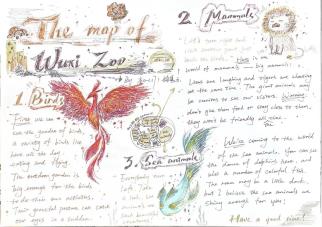 The map of
Wuxi Zoo
1. Birds
First we can
see the garden of birds,
a variety of birds live
here all the day
The outdoor garden is
big enough for the birds
to do their own activities.
Their graceful posture can catch
our eyes in a sudden.
2. Mammals
Let's turn right and
Here is an
world of mammals — big mammals.
Lions are laughing and tigers are sleeping
at the same time. The giant animals may
be curious to see our visitors. Warning:
don't give them food or stay close to them,
they won't be friendly all time.
3. Sea animals
Everybody turn
left. Take
a look, sea
animals are
We're coming to the world
of the sea animals. You can see
the dance of dolphins here, and
also a number of colorful fish.
The room may be a little dark,
but I believe the sea animals are
shiny enough for you!
Have a good time!